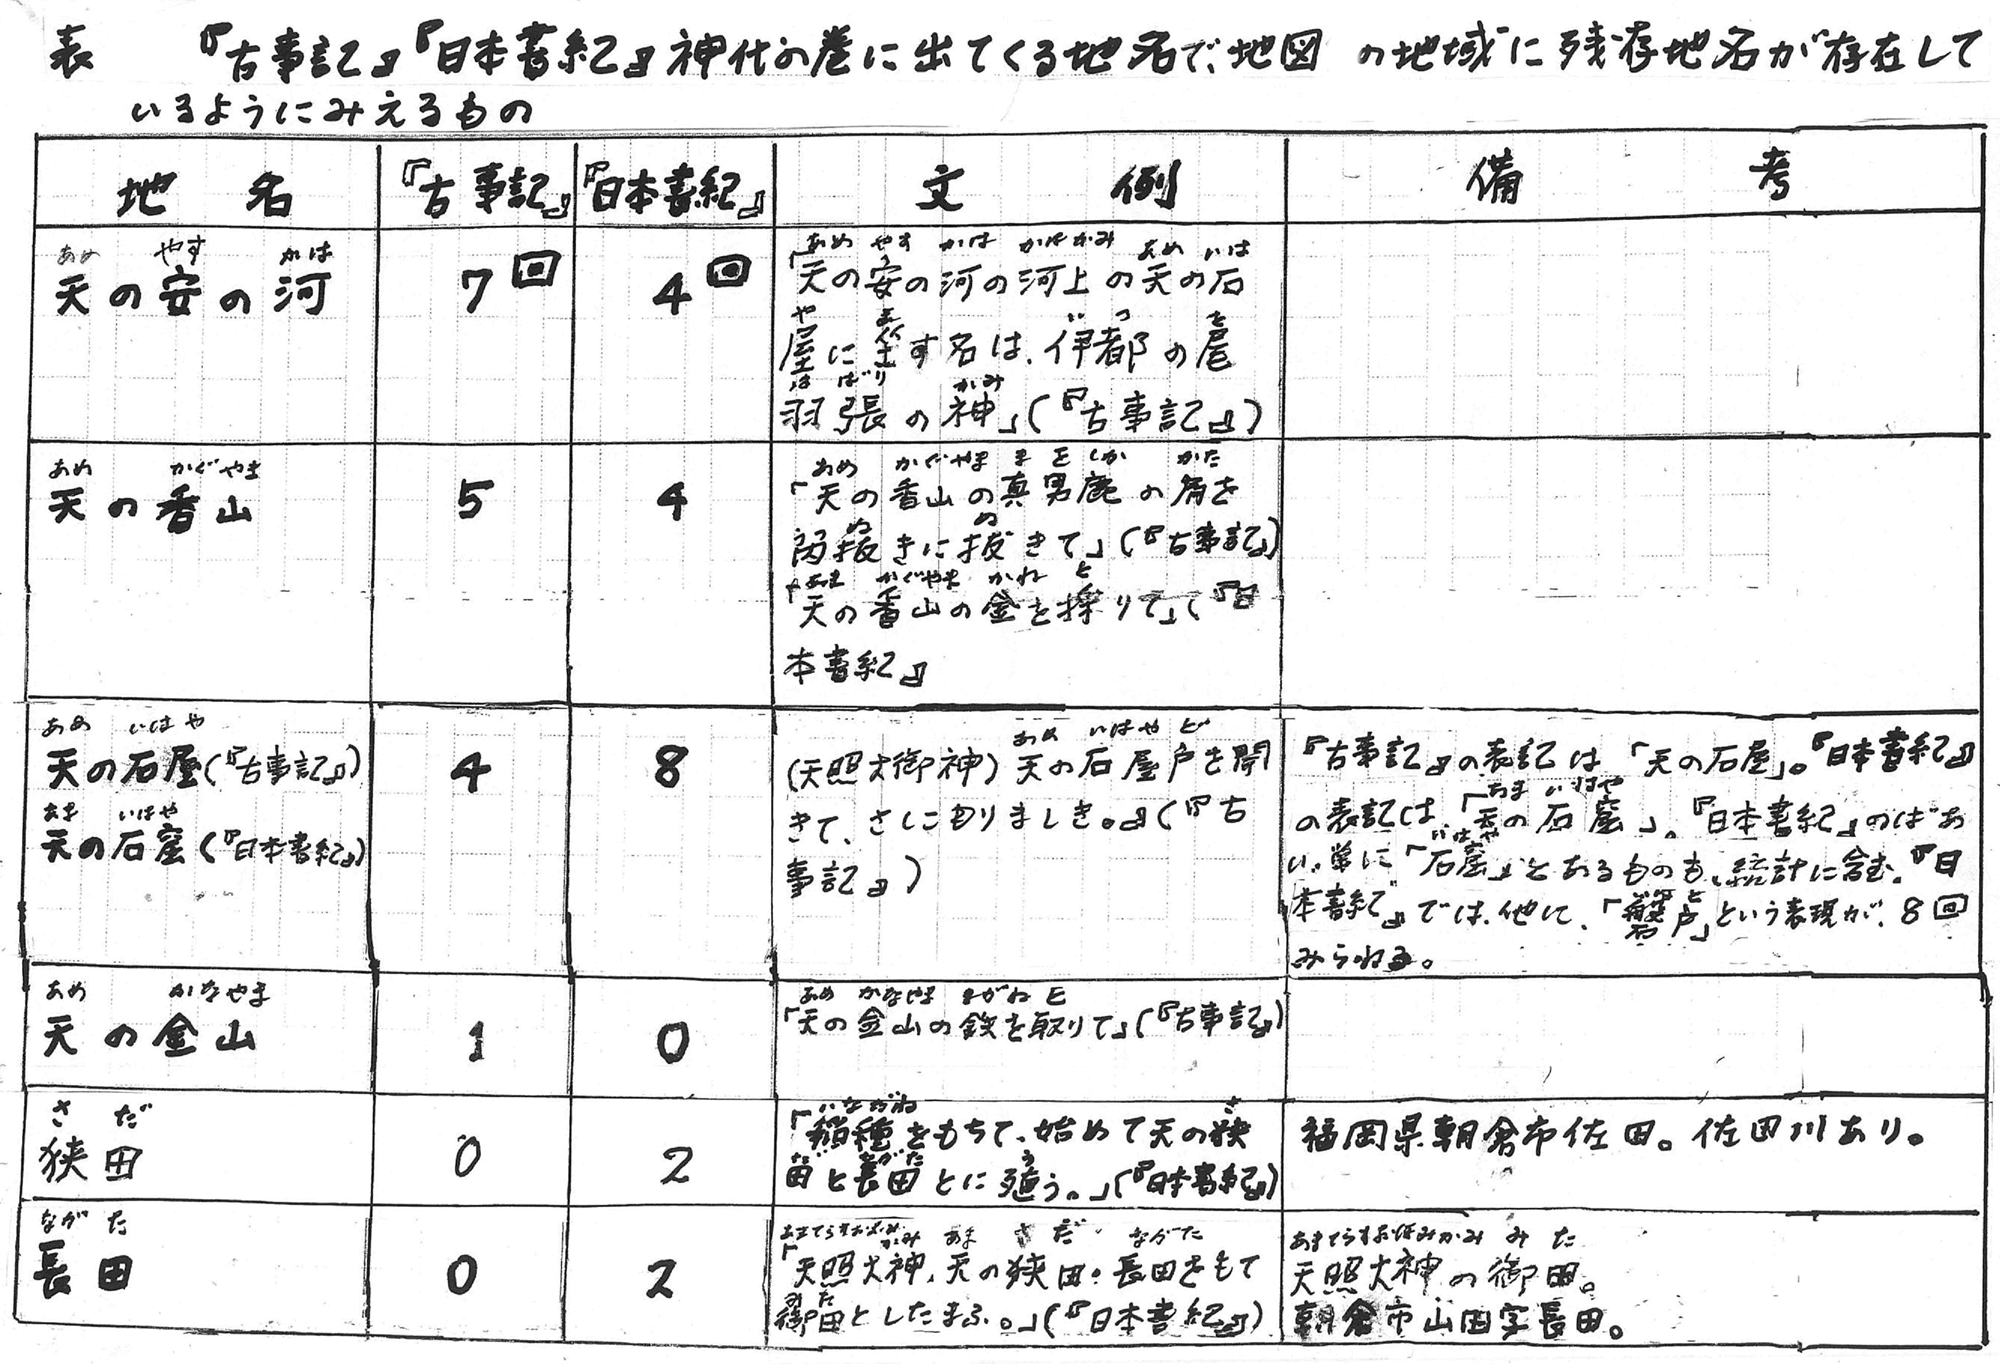 表　『古事記』『日本書紀』神代の巻に出てくる地名で、地図　の地域に残存地名が存在して
いるようにみえるもの
地　名
『古事記』
『日本書紀』
文　例
備　考
あめ　やす　かは
天の安の河
7回
4回
あめ　やす　かは　かはかみ　あめ　いは
「天の安の河の河上の天の石
や　ま　い　つ　を
屋に坐す名は、伊都の尾
は　ばり　かみ
羽張の神」(『古事記』)
あめ　かぐやま
天の香山
5
4
あめ　かぐやま　ま　を　しか　かた
「天の香山の真男鹿の肩を
ぬ　ぬ
内抜きに抜きて」(『古事記』)
あま　かぐやま　かね　と
「天の香山の金を採りて」(『日
本書紀』
あめ　いはや
天の石屋(『古事記』)
あま　いはや
天の石窟(『日本書紀』)
4
8
あめ　いはやど
(天照大御神)天の石屋戸を開
きて、さしこもりましき。』(『古
事記』)
『古事記』の表記は「天の石屋」。『日本書紀』
あま　いはや
の表記は、「天の石窟」。『日本書紀』のばあ
いはや
い、単に「石窟」とあるものも、統計に含む。『日
いはと
本書紀』では、他に、「磐戸」という表現が、8回
みられる。
あめ　かなやま
天の金山
1
0
あめ　かなやま　まがね　と
「天の金山の鉄を取りて」(『古事記』)
さ　だ
狭田
0
2
いなだね　さ
「稲種をもちて、始めて天の狭
だ　ながた　う
田と長田とに殖う。」(『日本書紀』)
福岡県朝倉市佐田。佐田川あり。
なが　た
長田
0
2
あまてらすおほみかみ　あま　さ　だ　ながた
「天照大神、天の狭田・長田をもて
みた
御田としたまふ。」(『日本書紀』)
あまてらすおほみかみ　み　た
天照大神の御田。
朝倉市山田字長田。